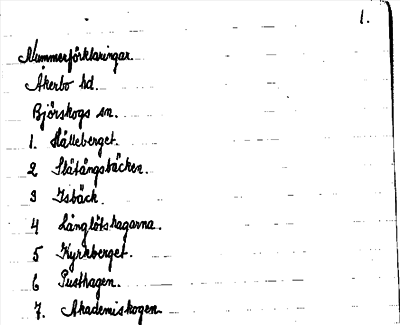 1.
Nummerförklaringar.
Åkerbo hd.
Björskogs sn.
1. Hälleberget.
2 Slåtängsbäcken.
3 Isbäck.
4 Långlötshagarna.
5 Kyrkberget.
6 Pusthagen.
7. Akademiskogen.